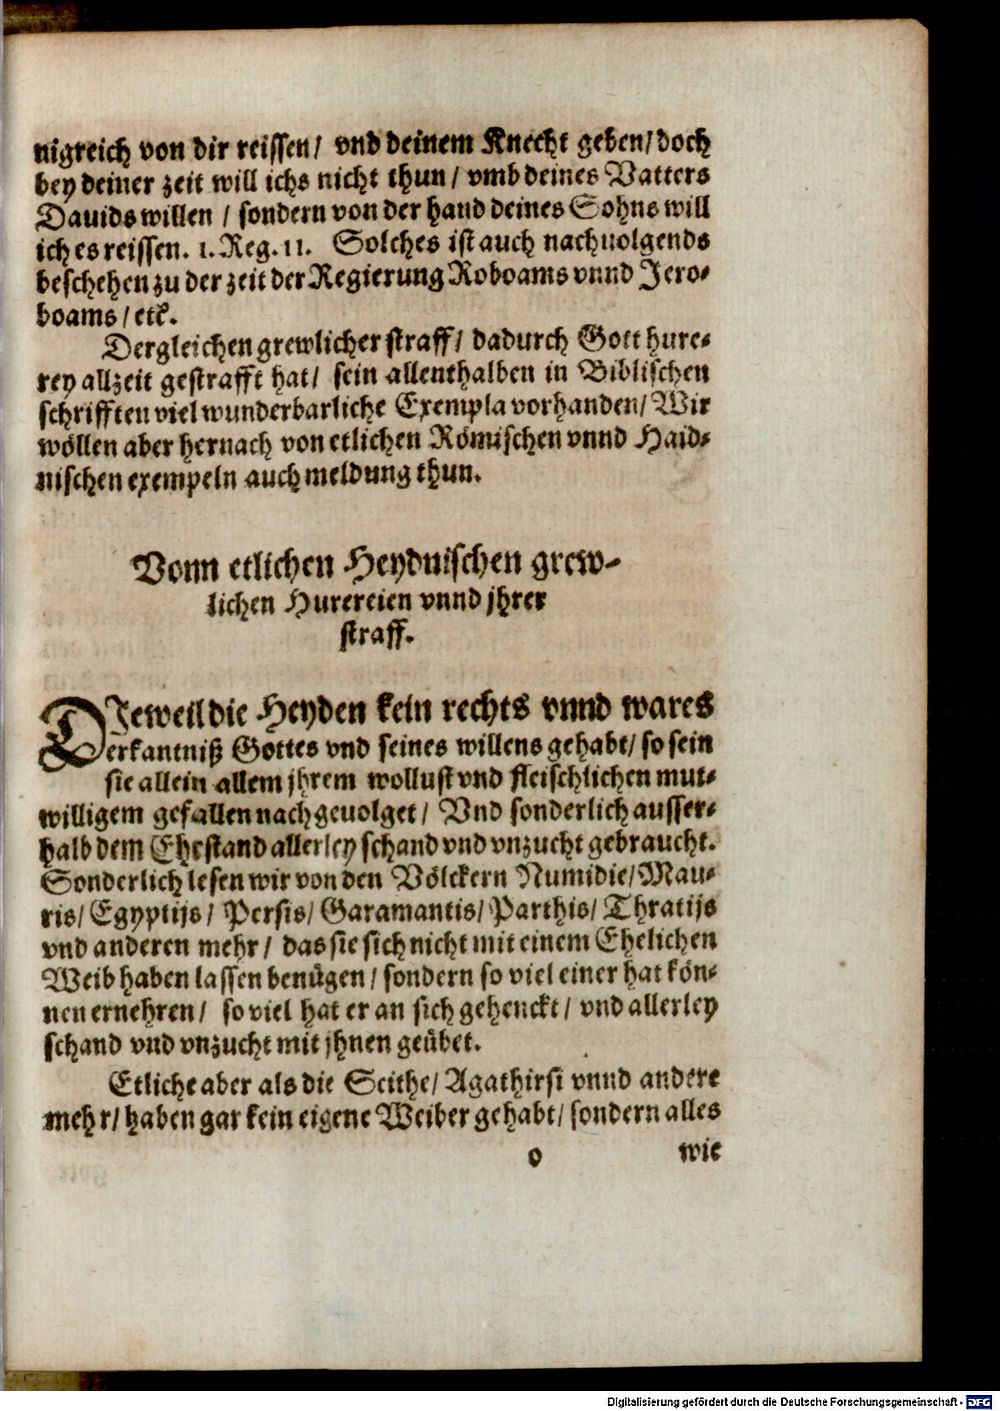 nigreich von dir reissen/ vnd deinem Knecht geben/ doch
bey deiner zeit will ichs nicht thun/ vmb deines Vatters
Dauids willen / sondern von der hand deines Sohns will
ich es reissen. 1. Reg. 11. Solches ist auch nachuolgends
beschehen zu der zeit der Regierung Roboams vnnd Jero-
boams / etc.
Dergleichen grewlicher straff/ dadurch Gott hure-
rey allzeit gestrafft hat/ sein allenthalben in Biblischen
schrifften viel wunderbarliche Exempla vorhanden/ Wir
wöllen aber hernach von etlichen Römischen vnnd Haid-
nischen exempeln auch meldung thun.
Vonn etlichen Heydnischen grew-
lichen Hurereien vnnd jhrer
straff.
DJeweil die Heyden kein rechts vnnd wares
erkantniß Gottes vnd seines willens gehabt/ so sein
sie allein allem jhrem wollust vnd fleischlichen mut-
willigem gefallen nachgeuolget/ Vnd sonderlich ausser-
halb dem Ehestand allerley schand vnd vnzucht gebraucht.
Sonderlich lesen wir von den Völckern Numidie/ Mau-
ris/ Egyptijs/ Persis/ Garamantis/ Parthis/ Thratijs
vnd anderen mehr/ das sie sich nicht mit einem Ehelichen
Weib haben lassen benügen/ sondern so viel einer hat kön-
nen ernehren/ so viel hat er an sich gehenckt/ vnd allerley
schand vnd vnzucht mit jhnen geübet.
Etliche aber als die Scithe/ Agathirsi vnnd andere
mehr/ haben gar kein eigene Weiber gehabt/ sondern alles
o wie
Digitalisierung gefördert durch die Deutsche Forschungsgemeinschaft - DFG